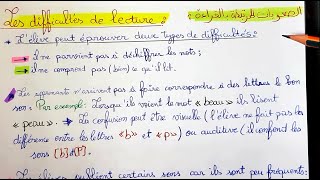 Les difficultés de lecture : الصعوبات المرتبطة بالقراءة :
* L'élève peut éprouver deux types de difficultés :
→ il ne parvient pas à déchiffrer les mots ;
→ il ne comprend pas (bien) ce qu'il lit.
Les apprenants n'arrivent pas à faire correspondre à des lettres le bon
son : Par exemple : Lorsqu'ils voient le mot « beau » ils lisent
« peau ». → La confusion peut être visuelle (l'élève ne fait pas la
différence entre les lettres « b » et « p ») ou auditive (il confond les
sons [b] et [P].
Les élèves oublient certains sons car ils sont peu fréquents :